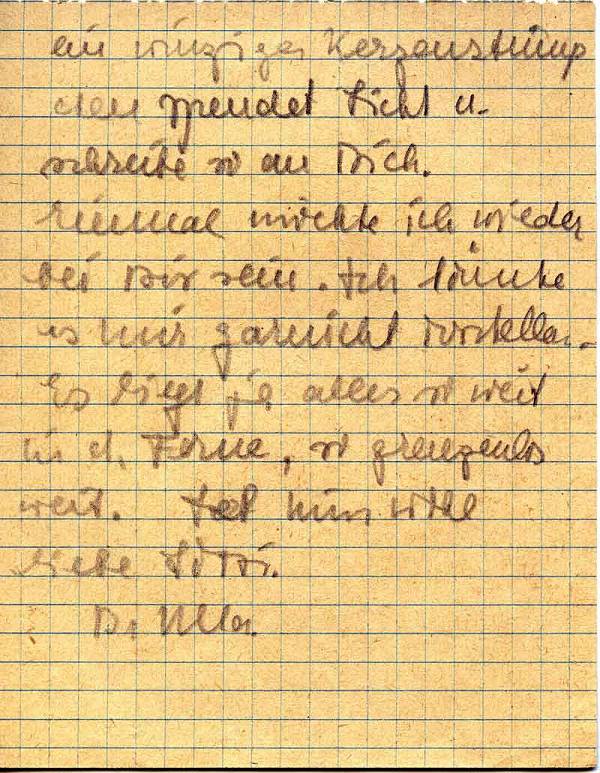 ein winziger Kerzenstümp
chen spendet Licht u.
schreibe so an Dich.
Einmal möchte ich wieder
bei Dir sein. Ich könnte
es mir garnicht vorstellen.
Es liegt ja alles so weit
in d. Ferne, so grenzenlos
weit. Leb nun wohl
liebe